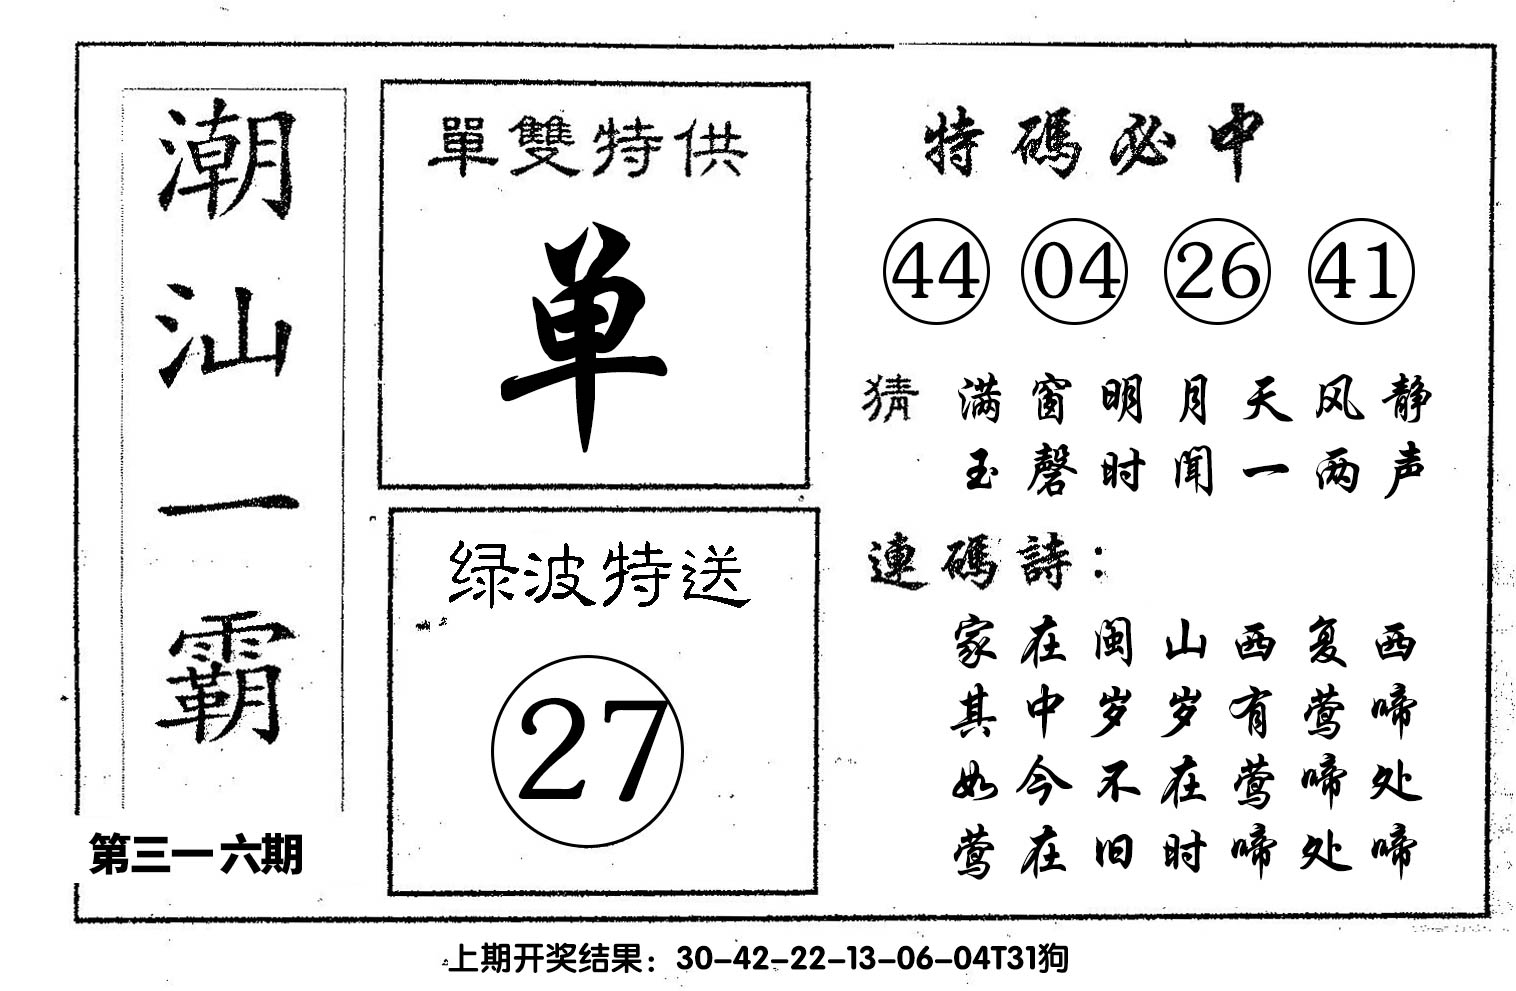 潮汕一霸
第三一六期
單雙特供
单
绿波特送
27
特碼必中
44 04 26 41
猜 满窗明月天风静
玉磬时闻一两声
連碼詩：
家在闽山西复西
其中岁岁有莺啼
如今不在莺啼处
莺在旧时啼处啼
上期开奖结果：30-42-22-13-06-04T31狗